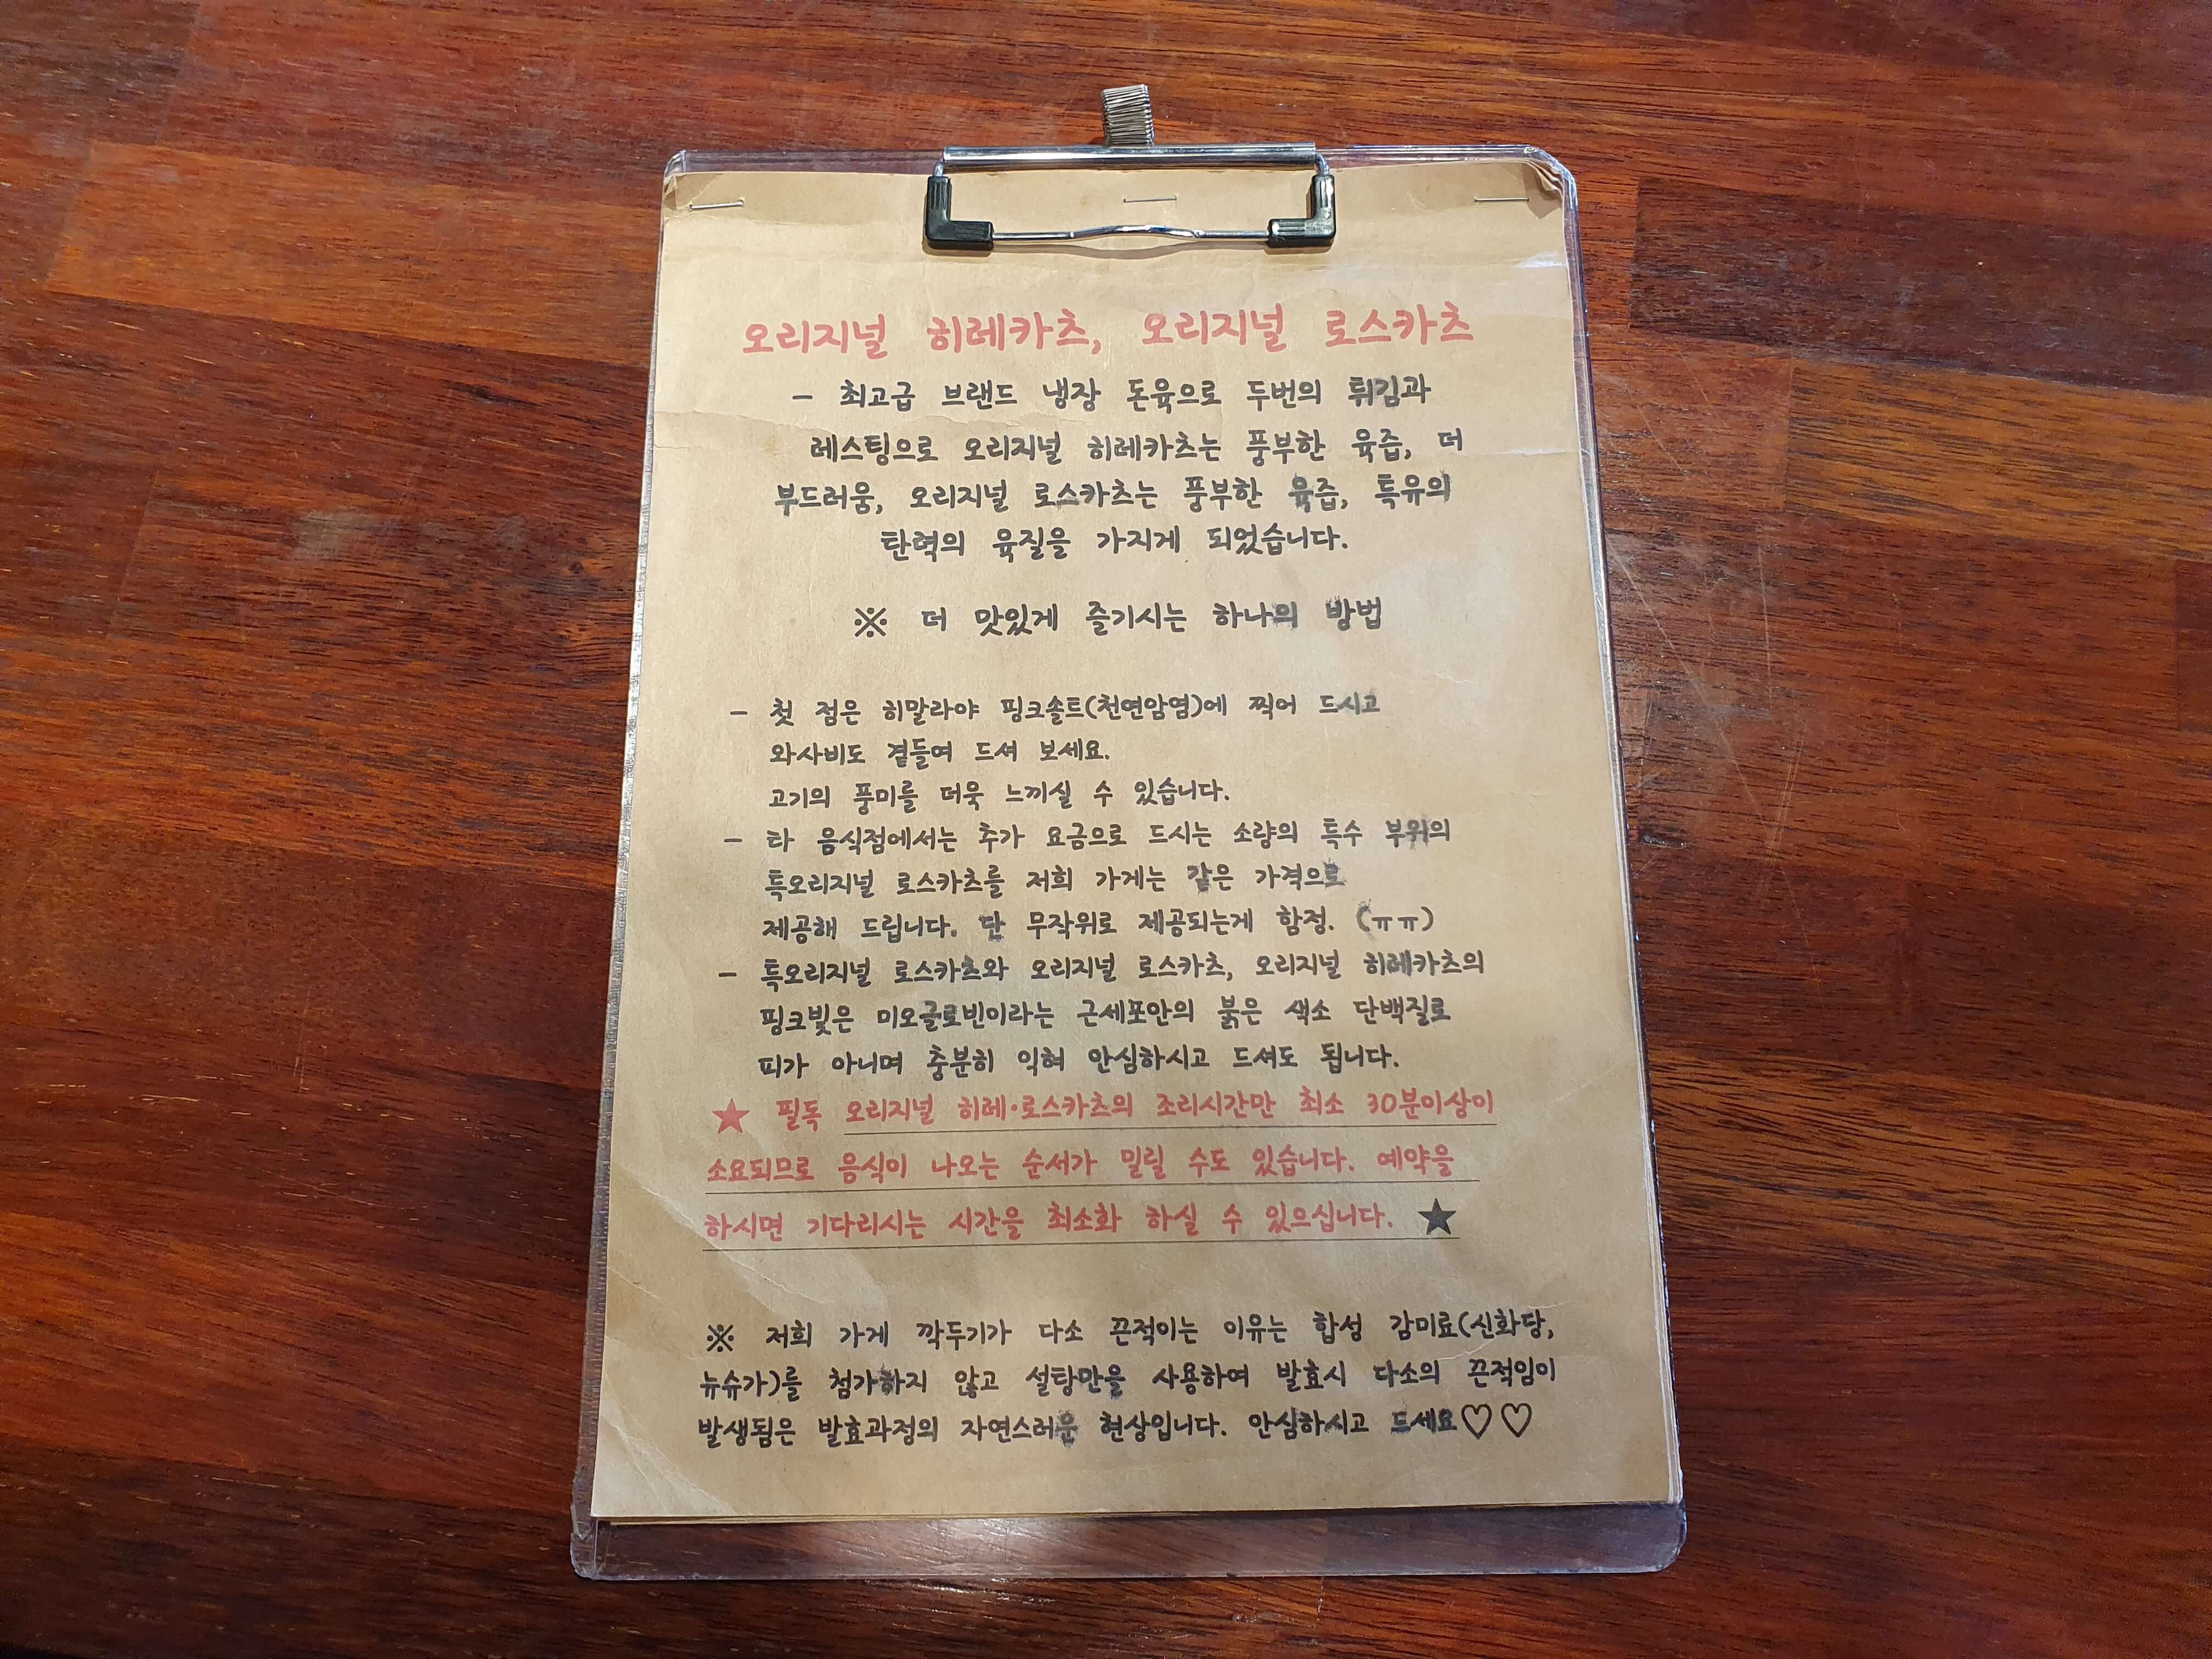 오리지널 히레카츠, 오리지널 로스카츠
- 최고급 브랜드 냉장 돈육으로 두번의 튀김과
레스팅으로 오리지널 히레카츠는 풍부한 육즙, 더
부드러움, 오리지널 로스카츠는 풍부한 육즙, 특유의
탄력의 육질을 가지게 되었습니다.
※ 더 맛있게 즐기시는 하나의 방법
- 첫 점은 히말라야 핑크솔트(천연암염)에 찍어 드시고
와사비도 곁들여 드셔 보세요.
고기의 풍미를 더욱 느끼실 수 있습니다.
- 타 음식점에서는 추가 요금으로 드시는 소량의 특수 부위의
특오리지널 로스카츠를 저희 가게는 같은 가격으로
제공해 드립니다. 단 무작위로 제공되는게 함정. (ㅠㅠ)
- 특오리지널 로스카츠와 오리지널 로스카츠, 오리지널 히레카츠의
핑크빛은 미오글로빈이라는 근세포안의 붉은 색소 단백질로
피가 아니며 충분히 익혀 안심하시고 드셔도 됩니다.
★ 필독 오리지널 히레·로스카츠의 조리시간만 최소 30분이상이
소요되므로 음식이 나오는 순서가 밀릴 수도 있습니다. 예약을
하시면 기다리시는 시간을 최소화 하실 수 있으십니다. ★
※ 저희 가게 깍두기가 다소 끈적이는 이유는 합성 감미료(신화당,
뉴슈가)를 첨가하지 않고 설탕만을 사용하여 발효시 다소의 끈적임이
발생됨은 발효과정의 자연스러운 현상입니다. 안심하시고 드세요♡♡